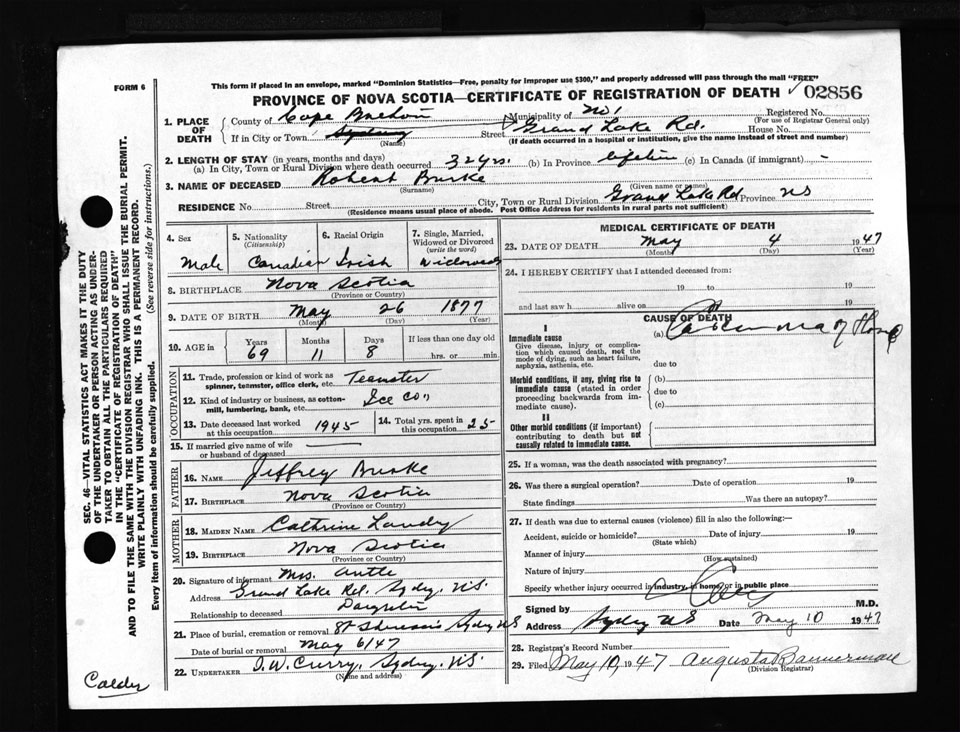 FORM 6
This form if placed in an envelope, marked "Dominion Statistics—Free, penalty for improper use $300," and properly addressed will pass through the mail "FREE"
PROVINCE OF NOVA SCOTIA—CERTIFICATE OF REGISTRATION OF DEATH ✓ 02856
1. PLACE OF DEATH
County of Cape Breton Municipality of No 1 Registered No.
(For use of Registrar General only)
If in City or Town Sydney Street Grand Lake Rd. House No.
(Name) (If death occurred in a hospital or institution, give the name instead of street and number)
2. LENGTH OF STAY (in years, months and days)
(a) In City, Town or Rural Division where death occurred 32 yrs. (b) In Province lifetime (c) In Canada (if immigrant) -
3. NAME OF DECEASED Robert Burke
(Surname) (Given name or names)
RESIDENCE No. Street City, Town or Rural Division Grand Lake Rd Province NS
(Residence means usual place of abode. Post Office Address for residents in rural parts not sufficient)
SEC. 46—VITAL STATISTICS ACT MAKES IT THE DUTY
OF THE UNDERTAKER OR PERSON ACTING AS UNDER-
TAKER TO OBTAIN ALL THE PARTICULARS REQUIRED
IN THE "CERTIFICATE OF REGISTRATION OF DEATH"
AND TO FILE THE SAME WITH THE DIVISION REGISTRAR WHO SHALL ISSUE THE BURIAL PERMIT.
WRITE PLAINLY WITH UNFADING INK. THIS IS A PERMANENT RECORD.
Every item of information should be carefully supplied. (See reverse side for instructions.)
4. Sex
Male
5. Nationality
(Citizenship)
Canadian
6. Racial Origin
Irish
7. Single, Married, Widowed or Divorced
(write the word)
Widowed
8. BIRTHPLACE Nova Scotia
(Province or Country)
9. DATE OF BIRTH May 26 1877
(Month) (Day) (Year)
10. AGE in Years Months Days If less than one day old
69 11 8 hrs. or min.
OCCUPATION
11. Trade, profession or kind of work as spinner, teamster, office clerk, etc. Teamster
12. Kind of industry or business, as cotton-mill, lumbering, bank, etc. Ice Co.
13. Date deceased last worked at this occupation 1945
14. Total yrs. spent in this occupation 25
15. If married give name of wife or husband of deceased
FATHER
16. Name Jeffrey Burke
17. Birthplace Nova Scotia
MOTHER
18. Maiden Name Cathrine Landry
19. Birthplace Nova Scotia
(Province or Country)
20. Signature of informant Mrs. Antle
Address Grand Lake Rd. Sydney, N.S.
Relationship to deceased Daughter
21. Place of burial, cremation or removal St Theresa's Sydney NS
Date of burial or removal May 6/47
22. UNDERTAKER T. W. Curry, Sydney, N.S.
(Name and address)
Calder
MEDICAL CERTIFICATE OF DEATH
23. DATE OF DEATH May 4 1947
(Month) (Day)
24. I HEREBY CERTIFY that I attended deceased from:
19 to 19
and last saw h alive on 19
CAUSE OF DEATH
I
Immediate cause
Give disease, injury or complication which caused death, not the mode of dying, such as heart failure, asphyxia, asthenia, etc.
(a) Carcinoma of
due to
Morbid conditions, if any, giving rise to immediate cause (stated in order proceeding backwards from immediate cause).
(b)
due to
(c)
II
Other morbid conditions (if important) contributing to death but not causally related to immediate cause.
25. If a woman, was the death associated with pregnancy?
26. Was there a surgical operation? Date of operation 19
State findings Was there an autopsy?
27. If death was due to external causes (violence) fill in also the following:—
Accident, suicide or homicide? Date of injury 19
(State which)
Manner of injury
(How sustained)
Nature of injury
Specify whether injury occurred in industry, in home, or in public place
Signed by M.D.
Address Sydney NS Date May 10 1947
28. Registrar's Record Number
29. Filed May 10, 1947 Augusta Bannerman
(Division Registrar)